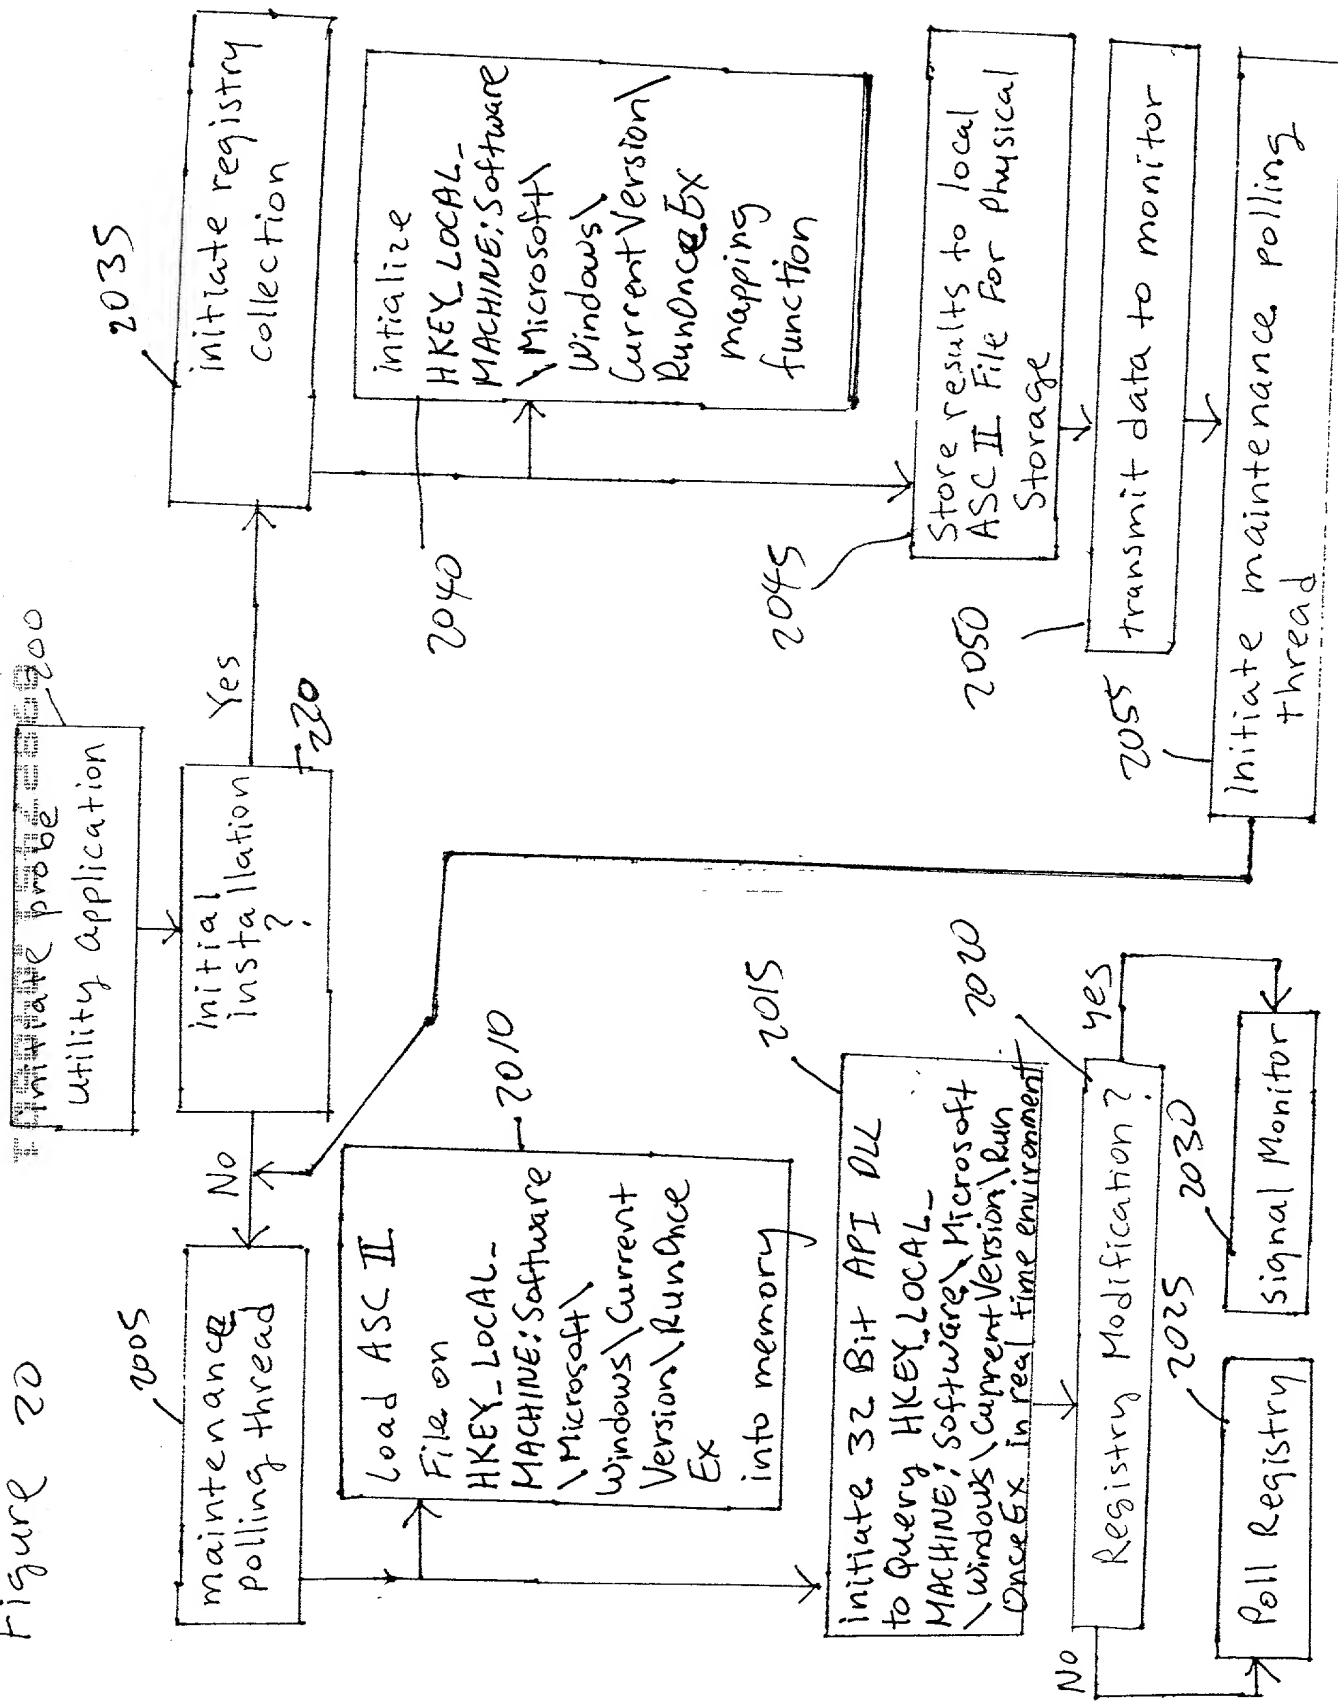 Figure 20
initiate probe
Utility application
200
initial
installation
?
220
Yes
No
2005
maintenance
polling thread
2010
Load ASC II
File on
HKEY_LOCAL_
MACHINE:Software
\Microsoft\
Windows\Current
Version\RunOnce
Ex
into memory
2015
initiate 32 Bit API DLL
to Query HKEY_LOCAL_
MACHINE; Software\Microsoft
\Windows\CurrentVersion\Run
OnceEx in real time environment
2020
Registry Modification?
No
yes
2025
Poll Registry
2030
signal Monitor
2035
initiate registry
collection
2040
intialize
HKEY_LOCAL_
MACHINE:Software
\Microsoft\
Windows\
CurrentVersion\
RunOnceEx
mapping
function
2045
Store results to local
ASC II File For Physical
Storage
2050
transmit data to monitor
2055
Initiate maintenance polling
thread